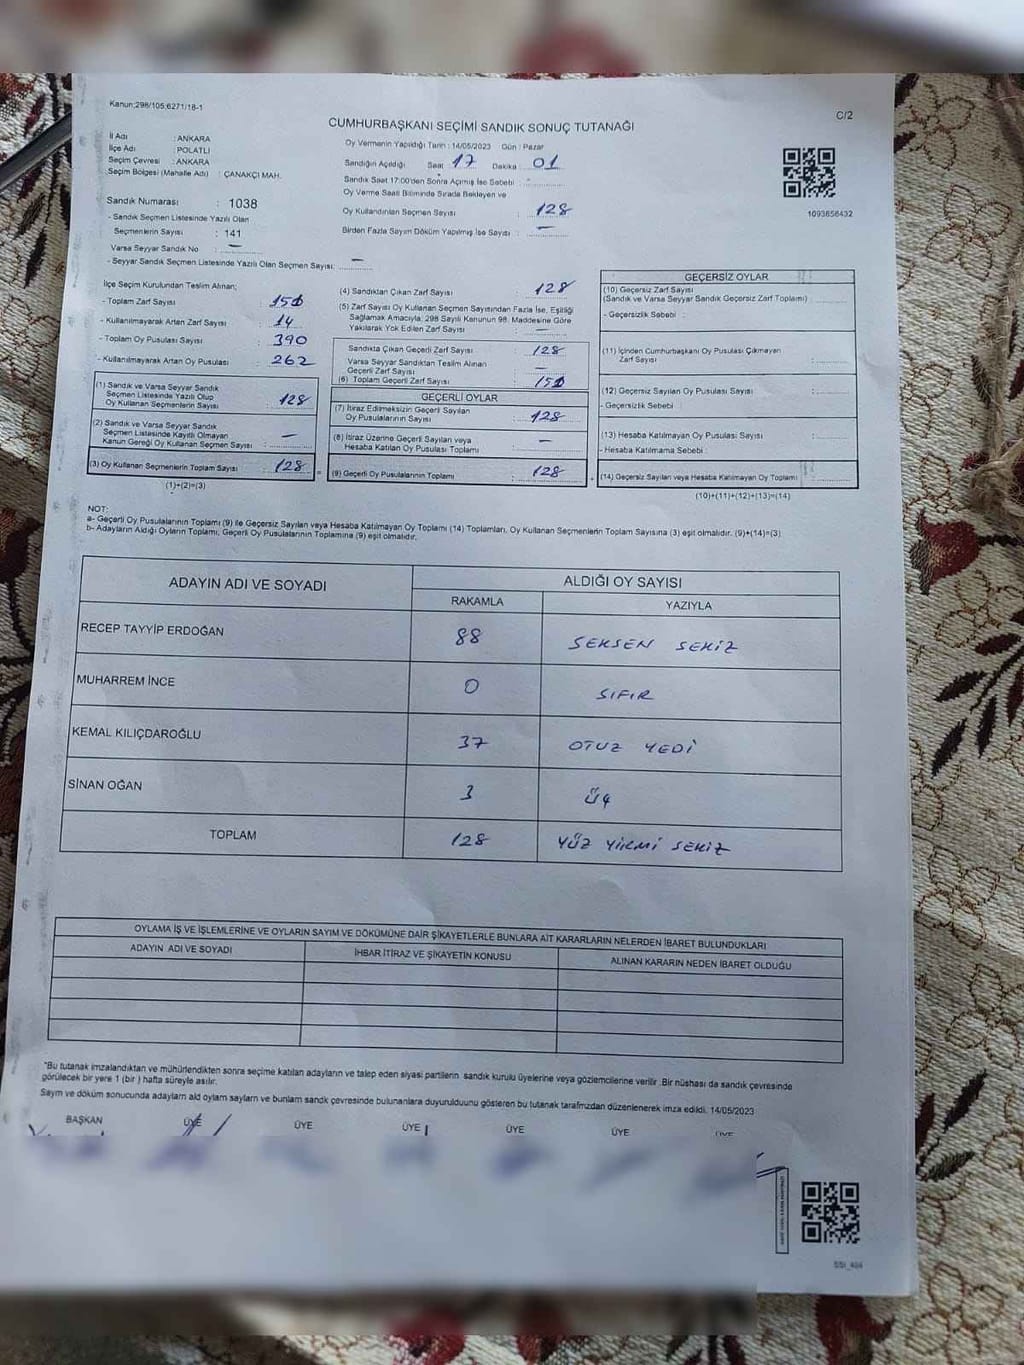 Kanun;298/105;6271/18-1
C/2
CUMHURBAŞKANI SEÇİMİ SANDIK SONUÇ TUTANAĞI
İl Adı : ANKARA
İlçe Adı : POLATLI
Seçim Çevresi : ANKARA
Seçim Bölgesi (Mahalle Adı) : ÇANAKÇI MAH.
Oy Vermenin Yapıldığı Tarih : 14/05/2023 Gün : Pazar
Sandığın Açıldığı Saat 17 Dakika : 01
Sandık Saat 17:00'den Sonra Açılmış İse Sebebi :
Oy Verme Saati Bitiminde Sırada Bekleyen ve
Oy Kullandırılan Seçmen Sayısı : 128
Birden Fazla Sayım Döküm Yapılmış İse Sayısı : —
1093656432
Sandık Numarası : 1038
- Sandık Seçmen Listesinde Yazılı Olan
Seçmenlerin Sayısı : 141
Varsa Seyyar Sandık No : —
- Seyyar Sandık Seçmen Listesinde Yazılı Olan Seçmen Sayısı: —
İlçe Seçim Kurulundan Teslim Alınan;
- Toplam Zarf Sayısı :
- Kullanılmayarak Artan Zarf Sayısı : 14
- Toplam Oy Pusulası Sayısı : 390
- Kullanılmayarak Artan Oy Pusulası : 262
(1) Sandık ve Varsa Seyyar Sandık
Seçmen Listesinde Yazılı Olup
Oy Kullanan Seçmenlerin Sayısı : 128
(2) Sandık ve Varsa Seyyar Sandık
Seçmen Listesinde Kayıtlı Olmayan
Kanun Gereği Oy Kullanan Seçmen Sayısı : —
(3) Oy Kullanan Seçmenlerin Toplam Sayısı : 128
(1)+(2)=(3)
(4) Sandıktan Çıkan Zarf Sayısı : 128
(5) Zarf Sayısı Oy Kullanan Seçmen Sayısından Fazla İse, Eşitliği
Sağlamak Amacıyla, 298 Sayılı Kanunun 98. Maddesine Göre
Yakılarak Yok Edilen Zarf Sayısı : —
Sandıkta Çıkan Geçerli Zarf Sayısı : 128
Varsa Seyyar Sandıktan Teslim Alınan
Geçerli Zarf Sayısı : —
(6) Toplam Geçerli Zarf Sayısı :
GEÇERLİ OYLAR
(7) İtiraz Edilmeksizin Geçerli Sayılan
Oy Pusulalarının Sayısı : 128
(8) İtiraz Üzerine Geçerli Sayılan veya
Hesaba Katılan Oy Pusulası Toplamı : —
= (9) Geçerli Oy Pusulalarının Toplamı : 128
GEÇERSİZ OYLAR
(10) Geçersiz Zarf Sayısı
(Sandık ve Varsa Seyyar Sandık Geçersiz Zarf Toplamı) :
- Geçersizlik Sebebi :
(11) İçinden Cumhurbaşkanı Oy Pusulası Çıkmayan
Zarf Sayısı :
(12) Geçersiz Sayılan Oy Pusulası Sayısı :
- Geçersizlik Sebebi :
(13) Hesaba Katılmayan Oy Pusulası Sayısı :
- Hesaba Katılmama Sebebi :
+ (14) Geçersiz Sayılan veya Hesaba Katılmayan Oy Toplamı :
(10)+(11)+(12)+(13)=(14)
NOT:
a- Geçerli Oy Pusulalarının Toplamı (9) ile Geçersiz Sayılan veya Hesaba Katılmayan Oy Toplamı (14) Toplamları, Oy Kullanan Seçmenlerin Toplam Sayısına (3) eşit olmalıdır. (9)+(14)=(3)
b- Adayların Aldığı Oyların Toplamı, Geçerli Oy Pusulalarının Toplamına (9) eşit olmalıdır.
ADAYIN ADI VE SOYADI ALDIĞI OY SAYISI
RAKAMLA YAZIYLA
RECEP TAYYİP ERDOĞAN 88 SEKSEN SEKİZ
MUHARREM İNCE 0 SIFIR
KEMAL KILIÇDAROĞLU 37 OTUZ YEDİ
SİNAN OĞAN 3 ÜÇ
TOPLAM 128 YÜZ YİRMİ SEKİZ
OYLAMA İŞ VE İŞLEMLERİNE VE OYLARIN SAYIM VE DÖKÜMÜNE DAİR ŞİKAYETLERLE BUNLARA AİT KARARLARIN NELERDEN İBARET BULUNDUKLARI
ADAYIN ADI VE SOYADI İHBAR İTİRAZ VE ŞİKAYETİN KONUSU ALINAN KARARIN NEDEN İBARET OLDUĞU
*Bu tutanak imzalandıktan ve mühürlendikten sonra seçime katılan adayların ve talep eden siyasi partilerin sandık kurulu üyelerine veya gözlemcilerine verilir .Bir nüshası da sandık çevresinde
görülecek bir yere 1 (bir ) hafta süreyle asılır.
Sayım ve döküm sonucunda adayların ald oyların sayıların ve bunların sandık çevresinde bulunanlara duyurulduunu gösteren bu tutanak tarafımzdan düzenlenerek imza edildi. 14/05/2023
BAŞKAN ÜYE ÜYE ÜYE ÜYE ÜYE ÜYE